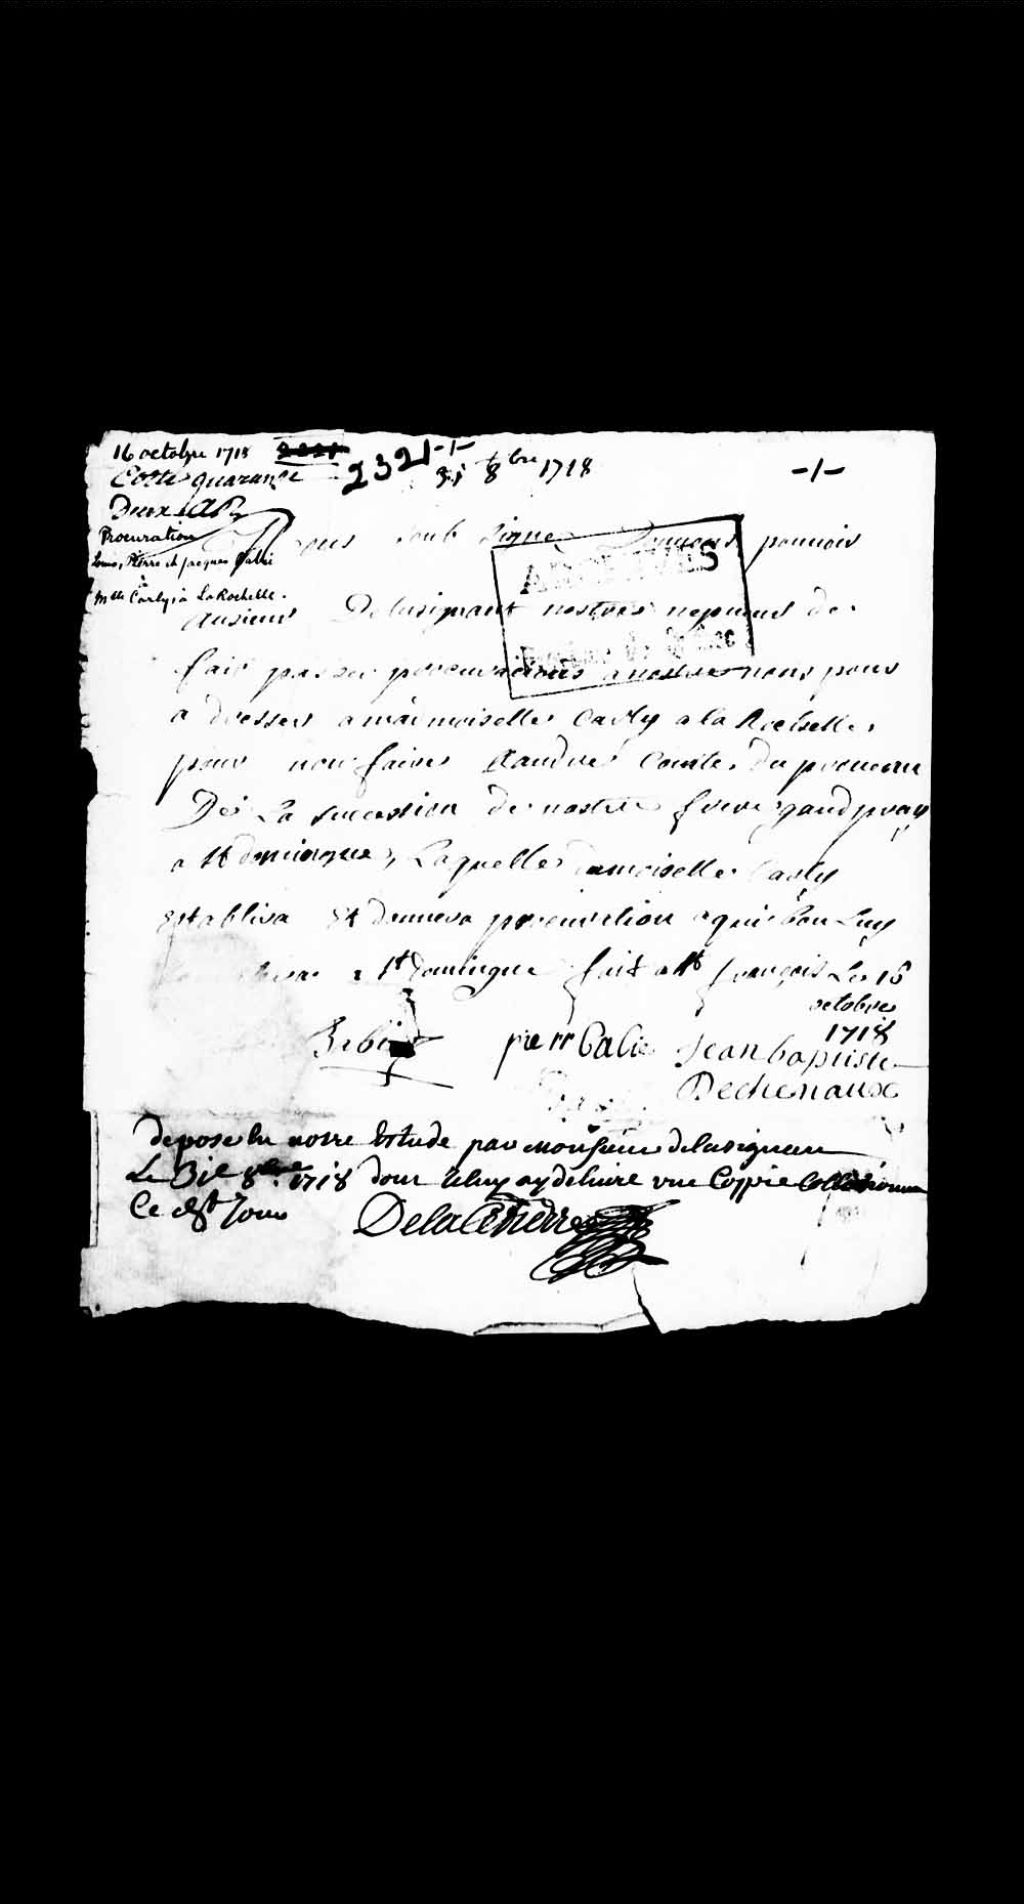 16 octobre 1718
Cotte quarante 2321 -/-
31 8bre 1718 -/-
Deux
Procuration
Louis, Pierre et Jacques
à
Mlle Carly, à La Rochelle.
nous soub signe Donnons pouvoir
ausieur Delusignant nostres nepveus de
fair passer procurations a nostre nons pour
a dresser a mai moiselle Carly a la Rochelle
pour nou faire Randre Comte du provenu
De La succession de nostre frere
a st domingue, Laquelle damoiselle Carly
Establira Et donnera procuration a qui bon Luy
a st domingue fait a st françois Le 16
octobre
1718
pierr Jean baptiste
Dechenaux
depose En notre Estude par Monsieur delusignan
Le 31e 8bre 1718 dont Celuy ay delivré une Coppie Collationnee
Ce dst Jour